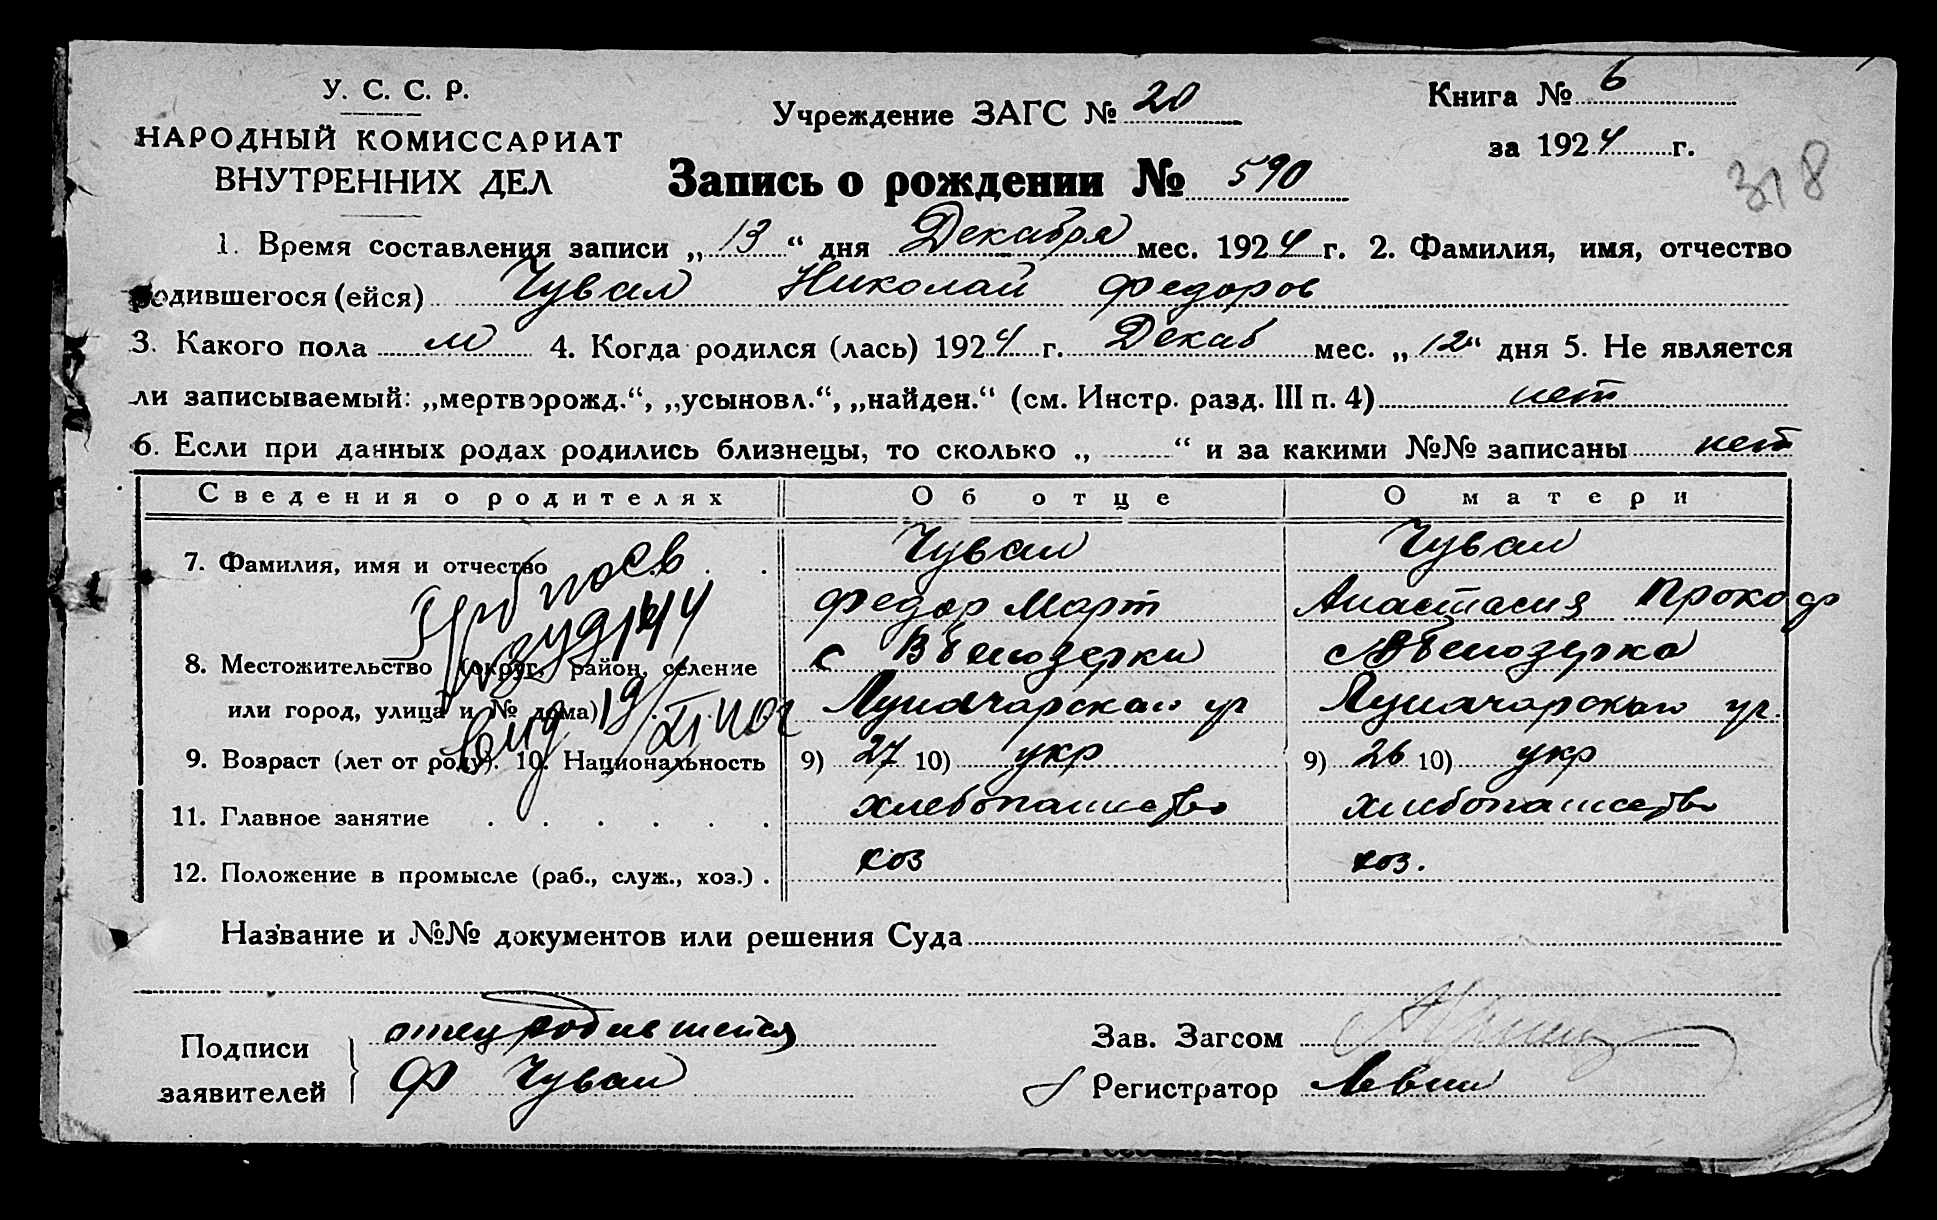 У. С. С. Р.
НАРОДНЫЙ КОМИССАРИАТ
ВНУТРЕННИХ ДЕЛ
Учреждение ЗАГС № 20
Книга № 6
за 1924 г.
318
Запись о рождении № 590
1. Время составления записи „ 13 “ дня Декабря мес. 1924 г. 2. Фамилия, имя, отчество
родившегося (ейся) Чувал Николай Федоров
3. Какого пола м 4. Когда родился (лась) 1924 г. Декаб мес. „ 12 “ дня 5. Не является
ли записываемый: „мертворожд.“, „усыновл.“, „найден.“ (см. Инстр. разд. III п. 4) нет
6. Если при данных родах родились близнецы, то сколько „ “ и за какими №№ записаны нет
Сведения о родителях Об отце О матери
7. Фамилия, имя и отчество Чувал Чувал
Федор Март Анастасия Прокоф
8. Местожительство (округ, район, селение с Белозерки с Белозерка
или город, улица и № дома) Луначарская ул Луначарская ул.
9. Возраст (лет от роду). 10. Национальность 9) 27 10) укр 9) 26 10) укр
11. Главное занятие хлебопашество хлебопашество
12. Положение в промысле (раб., служ., хоз.) хоз хоз.
Название и №№ документов или решения Суда
Подписи
заявителей
отец родившейся
Ф Чувал
Зав. Загсом
Регистратор Левин